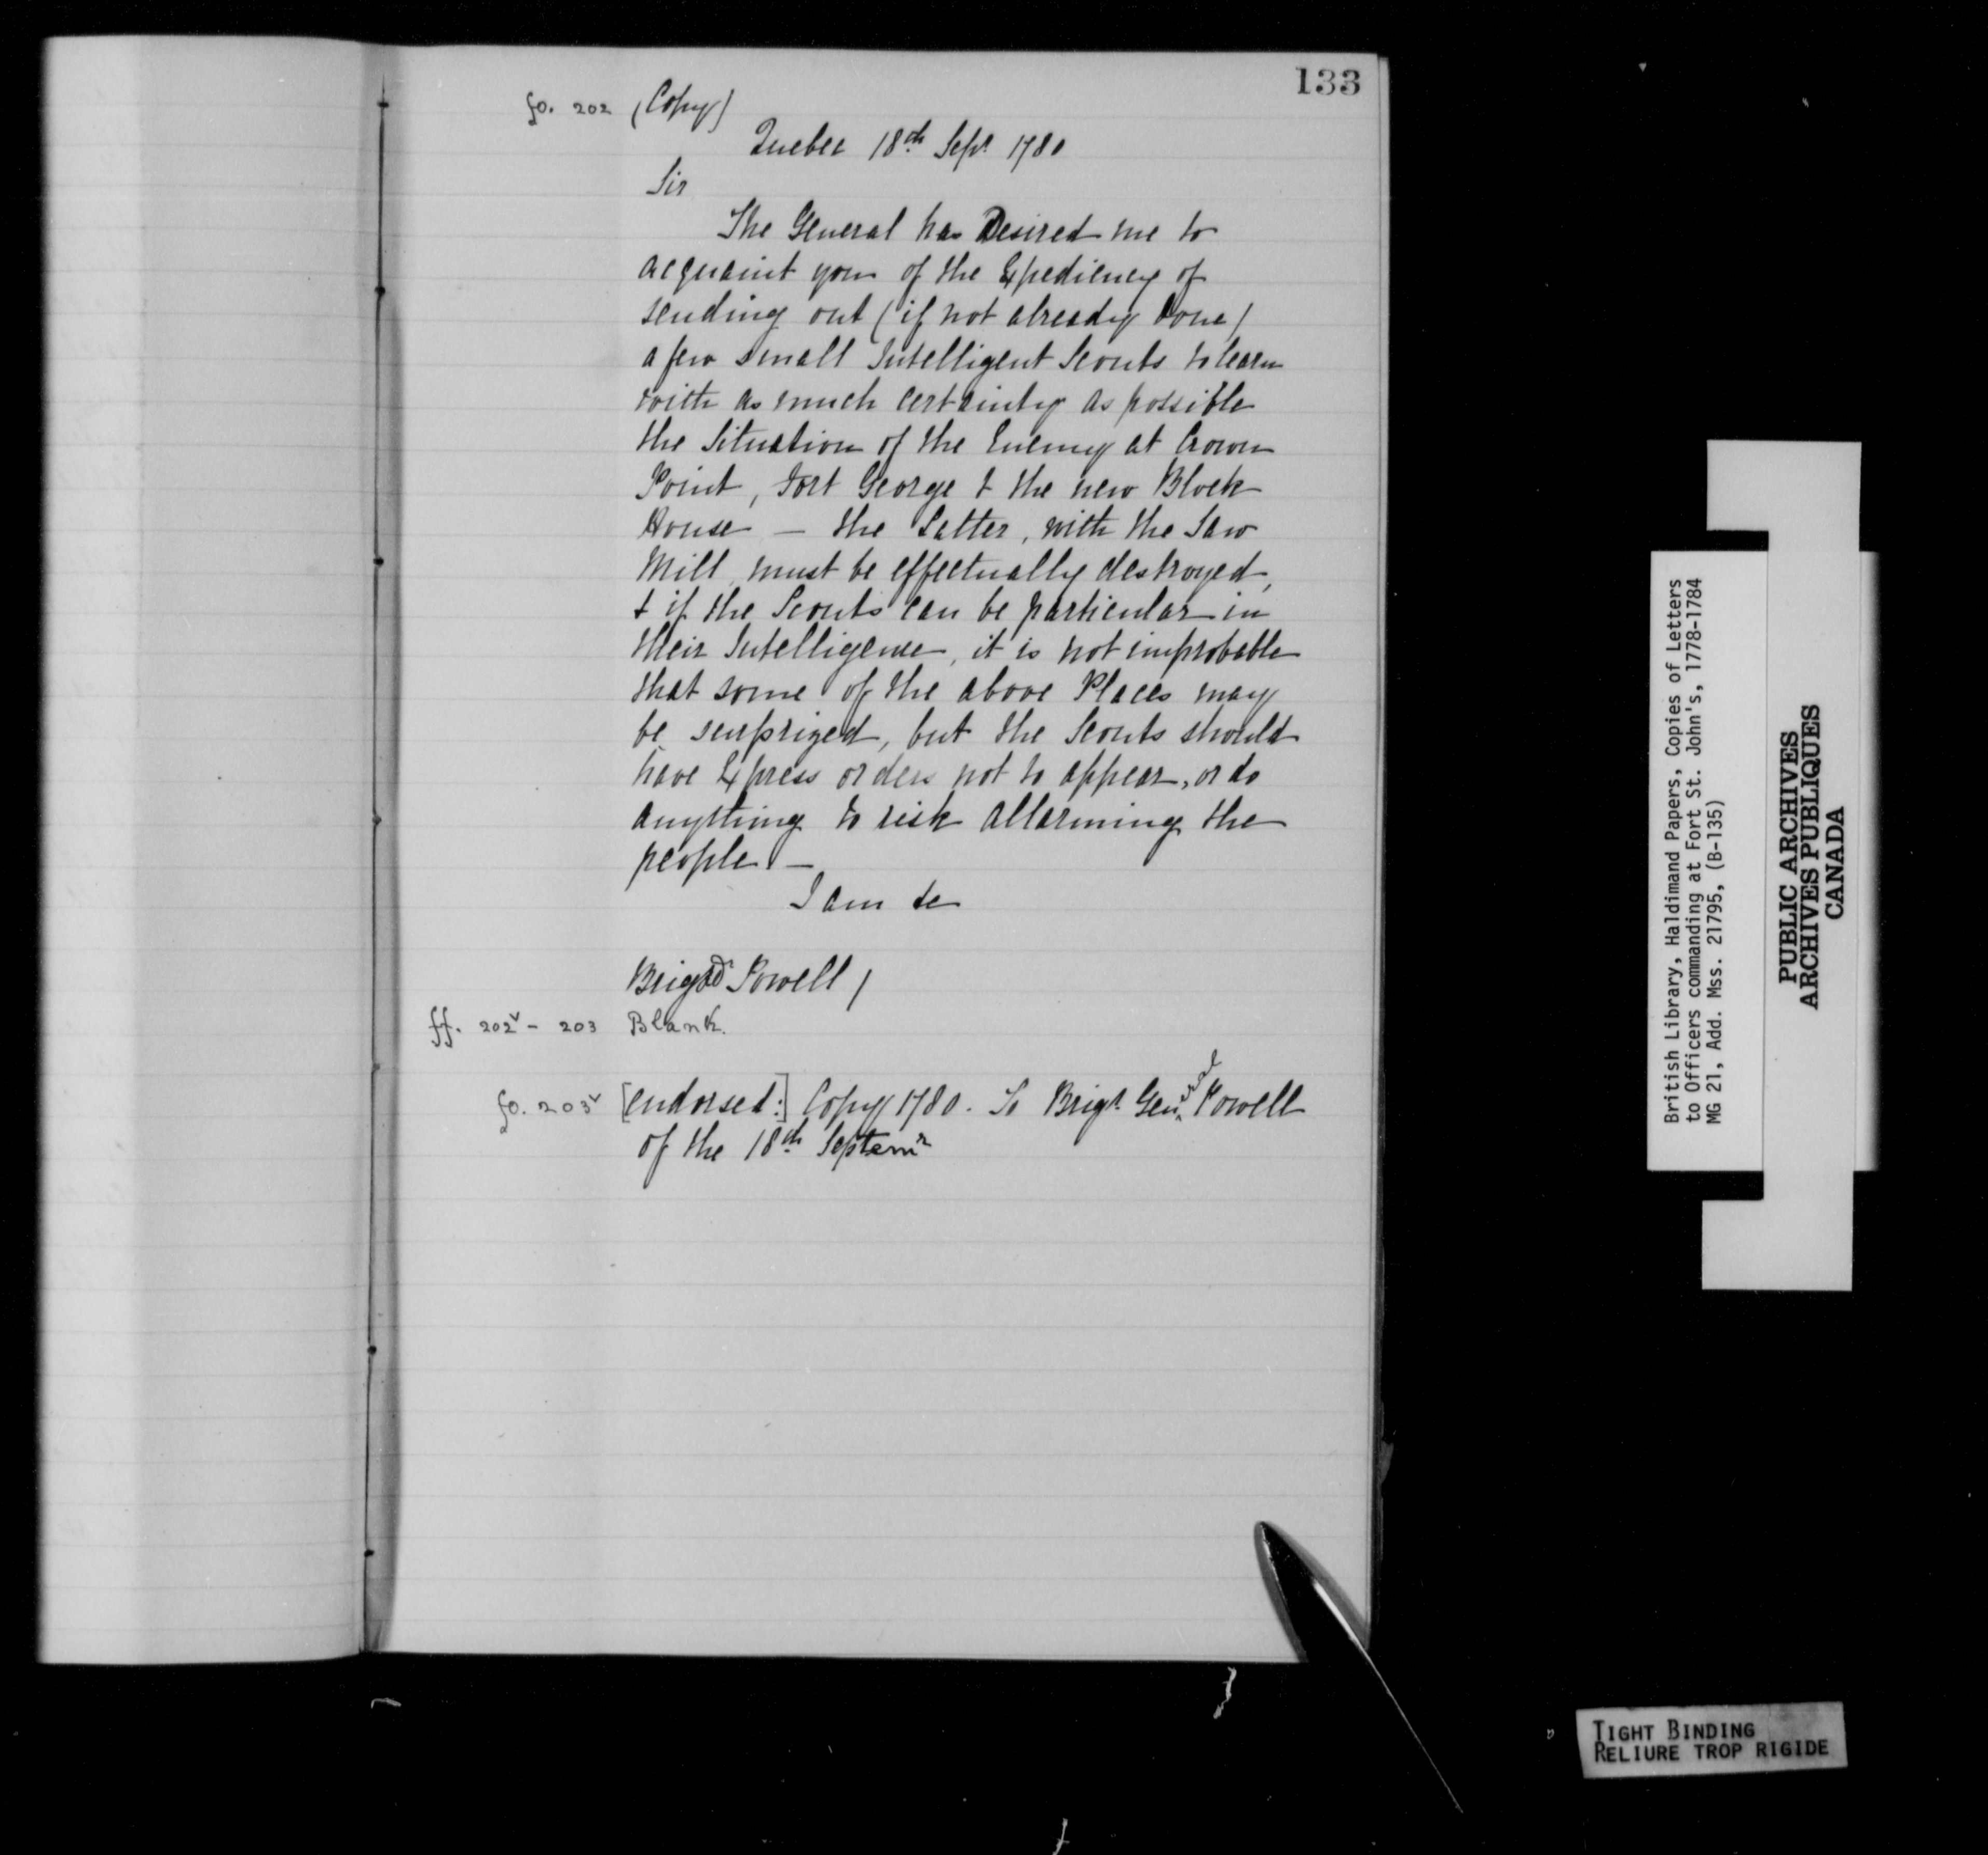 133
fo. 202 (Copy)
Quebec 18th Sept 1780
Sir
The General has Desired me to
acquaint you of the Expediency of
sending out (if not already Done)
a few small Intelligent Scouts to learn
with as much certainty as possible
the Situation of the Enemy at Crown
Point, Fort George & the new Block
House — the Latter, with the Saw
Mill, must be effectually destroyed,
& if the Scouts can be particular in
their Intelligence, it is not improbable
that some of the above Places may
be surprized, but the Scouts should
have Express orders not to appear, or do
anything to risk allarming the
people. —
I am &c
Brigr Powell /
ff. 202v - 203 Blank.
fo. 203v [endorsed:] Copy 1780. To Brigr. Genl Powell
of the 18th Septemr
British Library, Haldimand Papers, Copies of Letters
to Officers commanding at Fort St. John's, 1778-1784
MG 21, Add. Mss. 21795, (B-135)
PUBLIC ARCHIVES
ARCHIVES PUBLIQUES
CANADA
TIGHT BINDING
RELIURE TROP RIGIDE